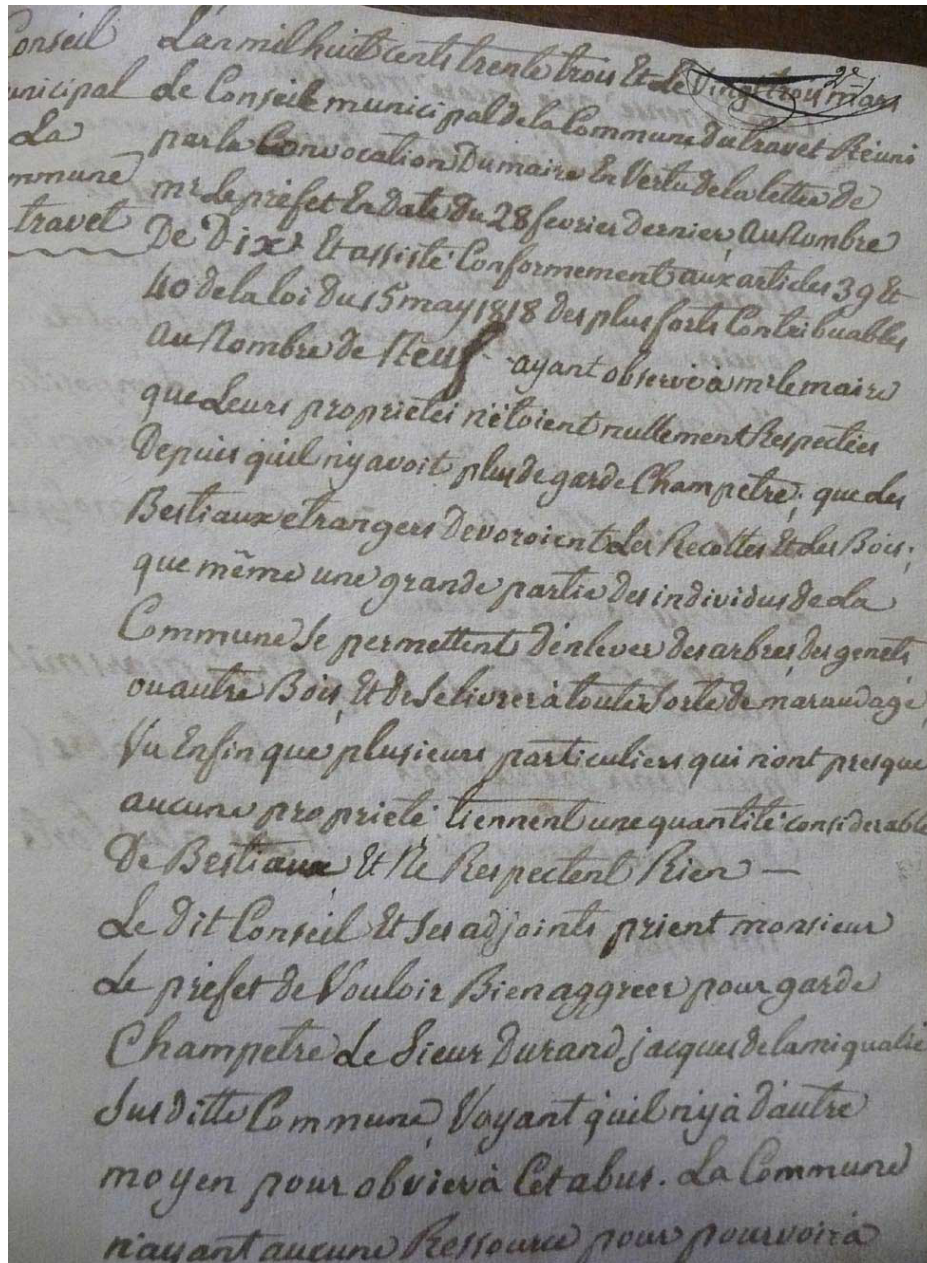 Conseil
unicipal
La
mmune
travet
L'an mil huit cents trente trois Et le Vingt trois mars
Le Conseil municipal de la Commune du travet Réuni
par la Convocation Du maire En Vertu de la lettre de
mr Le préfet En date du 28 fevrier dernier, Au Nombre
De Dix, Et assisté Conformement aux articles 39 Et
40 de la loi du 15 may 1818 des plus forts Contribuables
Au Nombre de Neuf - ayant observé à mr le maire
que Leurs proprietés n'étoient nullement Respectées
Depuis qu'il n'y avoit plus de garde Champetre; que des
Bestiaux etrangers Devoroient Les Recoltes Et Les Bois;
que même une grande partie des individus de La
Commune Se permettent D'enlever des arbres, des genets,
ou autre Bois, Et de Se livrer à toute Sorte de maraudage,
Vu Enfin que plusieurs particuliers qui n'ont presque
aucune proprieté tiennent une quantité considerable
De Bestiaux Et Ne Respectent Rien —
Le Dit Conseil Et Ses adjoints prient monsieur
Le préfet de Vouloir Bien aggreer pour garde
Champetre Le Sieur Durand jacques de lamiqualié
Sus ditte Commune, Voyant qu'il n'y à d'autre
moyen pour obvier à Cet abus. La Commune
n'ayant aucune Ressource pour pourvoir à